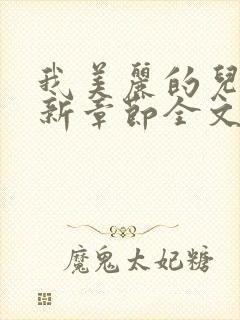 我美麗的兒
新章節全文
魔鬼太妃糖